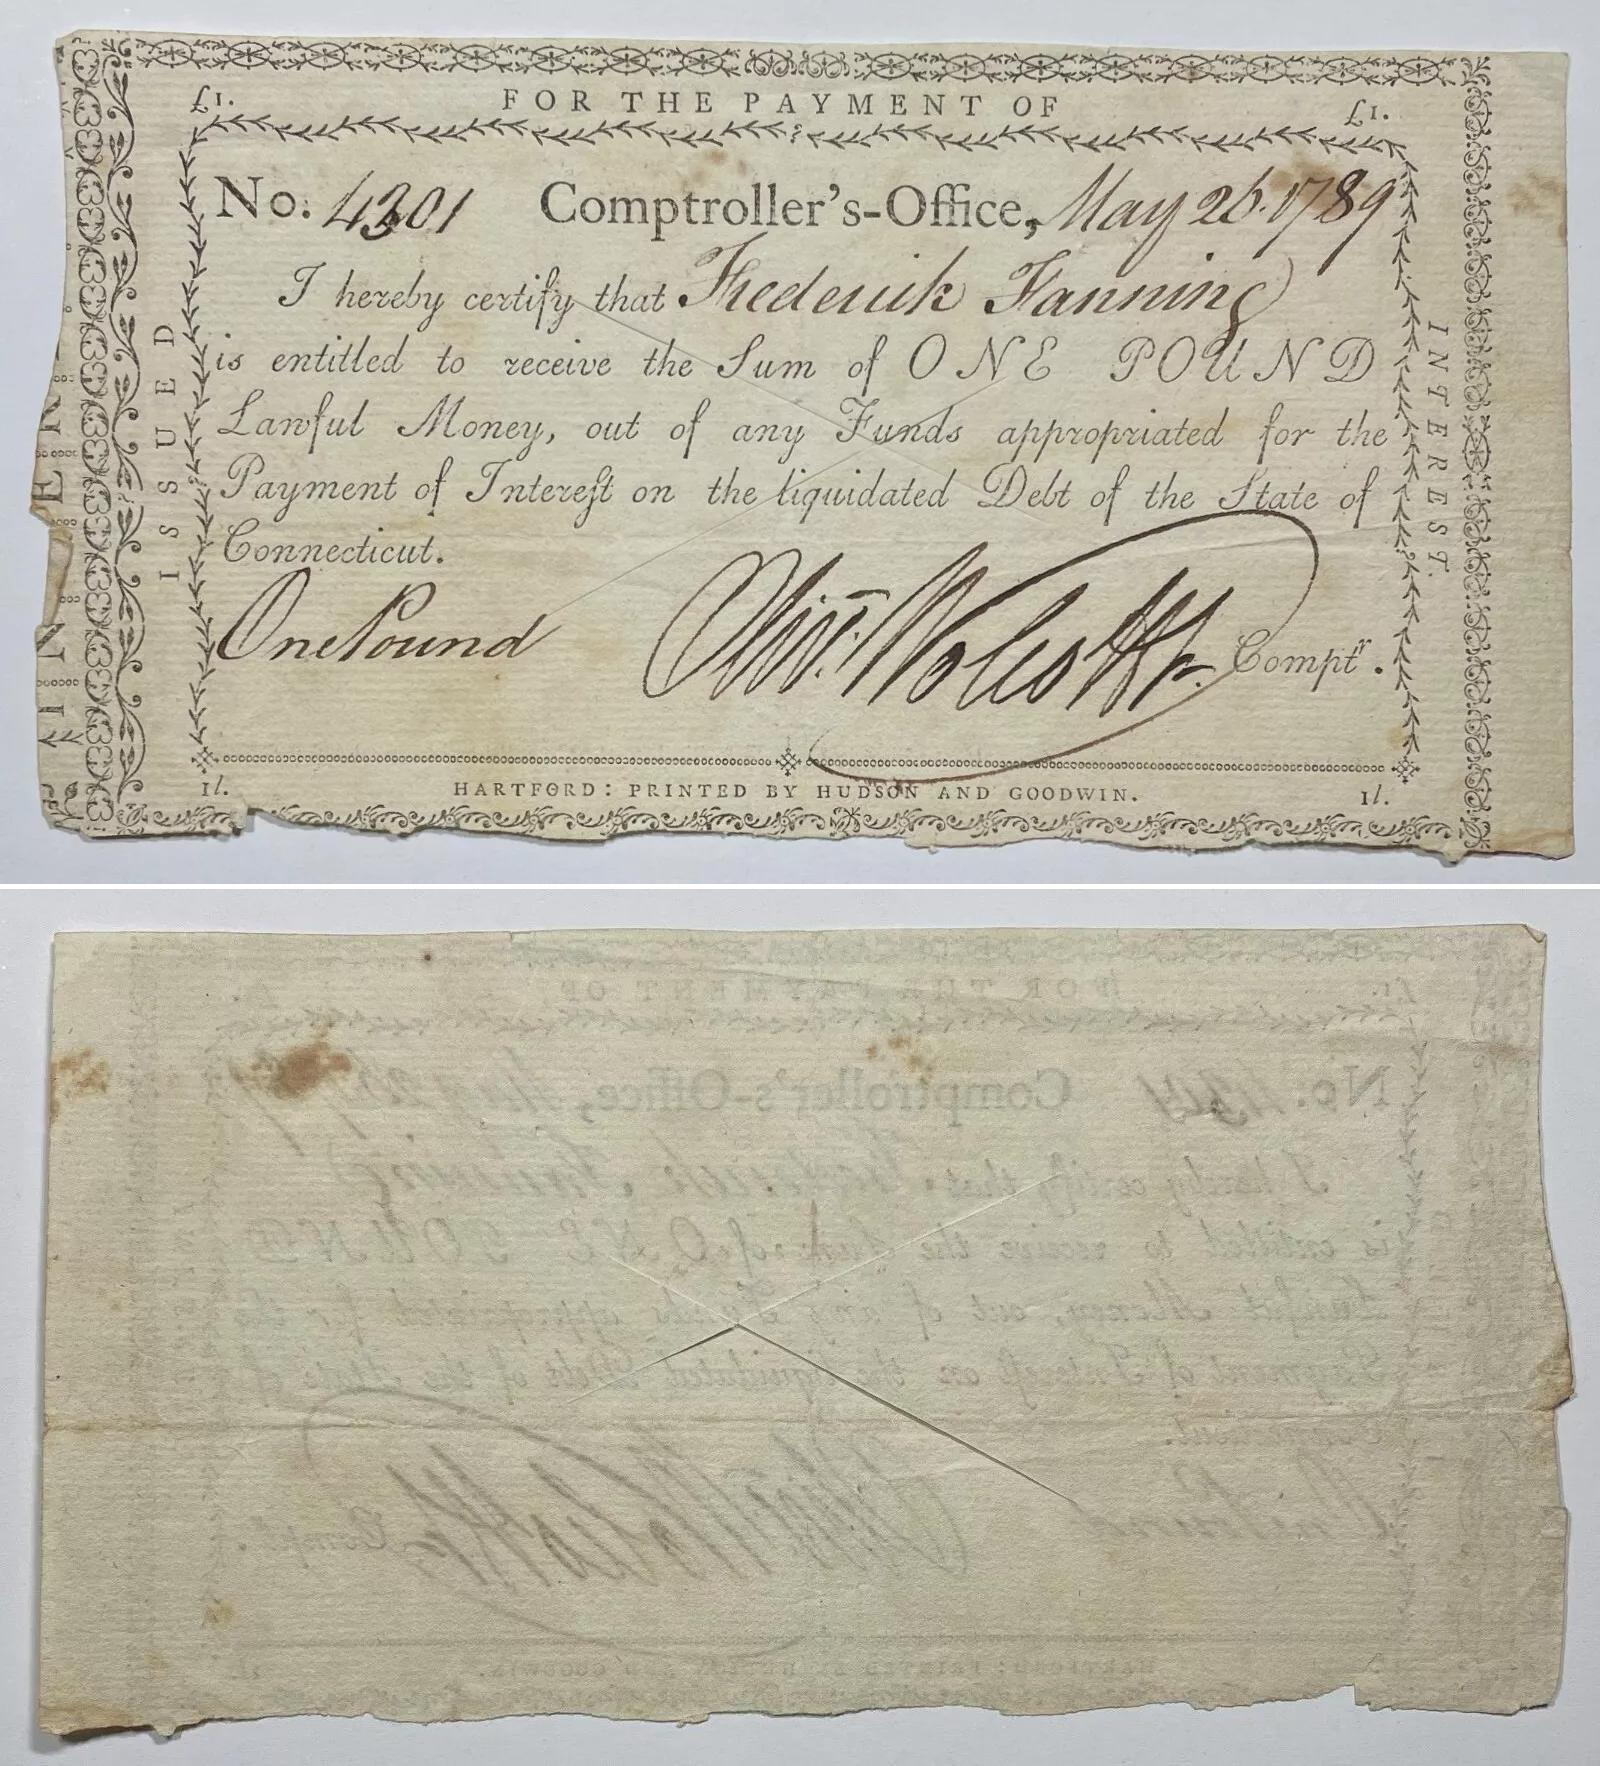 £1. FOR THE PAYMENT OF £1.
No. 4301 Comptroller's-Office, May 26. 1789
I hereby certify that Frederick Fanning
is entitled to receive the Sum of ONE POUND
Lawful Money, out of any Funds appropriated for the
Payment of Intereſt on the liquidated Debt of the State of
Connecticut.
One Pound Olivr. Wolcott Jr. Comptr.
1l. HARTFORD: PRINTED BY HUDSON AND GOODWIN. 1l.
ISSUED
INTEREST.